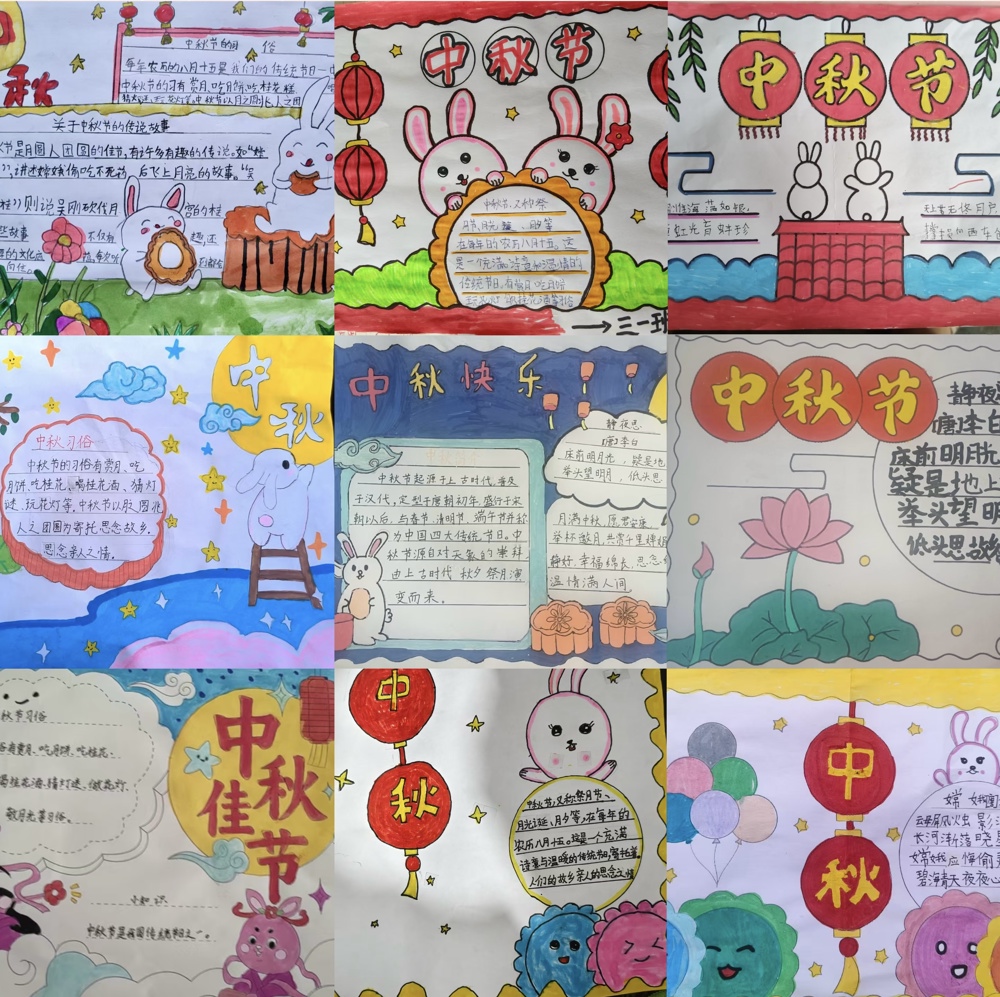 秋
中秋节的习俗
每年农历的八月十五是我们的传统节日一中
中秋节的习有赏月、吃月饼、吃桂花糕、
关于中秋节的传说故事
节是月圆人团圆的佳节,有许多有趣的传说。如“嫦
”,讲述嫦娥偷吃不死药,后飞上月亮的故事。“吴
桂》则说吴刚砍伐月宫的桂
中秋节
中秋节,又称祭
月节、月光诞、月夕等
在每年的农历八月十五。这
是一个充满诗意和温情的
传统节日,有赏月、吃月饼
→三一班
中秋节
中秋
中秋习俗
中秋节的习俗有赏月、吃
月饼、吃桂花、喝桂花酒、猜灯
谜、玩花灯等,中秋节以月圆兆
人之团圆为寄托思念故乡,
思念亲人之情。
中秋快乐
中秋节起源于上古时代,普及
于汉代,定型于唐朝初年,盛行于宋
朝以后,与春节、清明节、端午节并称
为中国四大传统节日。中
秋节源自对天象的崇拜
由上古时代秋夕祭月演
变而来。
静夜思
唐·李白
床前明月光,疑是地
举头望明月,低头思
月满中秋,愿君安康,
举杯邀月,共赏千里婵娟
静好,幸福绵长,思念
温情满人间
中秋节
静夜
唐李白
床前明月光
疑是地上
举头望明
低头思故
秋节习俗
俗有赏月、吃月饼、吃桂花、
喝桂花酒、猜灯谜、做花灯、
敬月光等习俗。
小知识
中秋节是我国传统节日之一。
中秋佳节
中秋
中秋节,又称祭月节、
月光诞、月夕等,在每年的
农历八月十五。这是一个充满
诗意与温暖的传统节日,寄托着
人们的故乡亲人的思念之情
中秋
嫦娥
云母屏风烛影深
长河渐落晓星
嫦娥应悔偷灵
碧海青天夜夜心